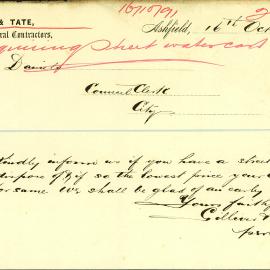 16/10/91
& TATE,
eral Contractors,
Ashfield, 16th Oct
quiring street water cart
Council Clerk
City
Kindly inform us if you have a street
dispose of & if so the lowest price your
for same We shall be glad of an early
Yours faith